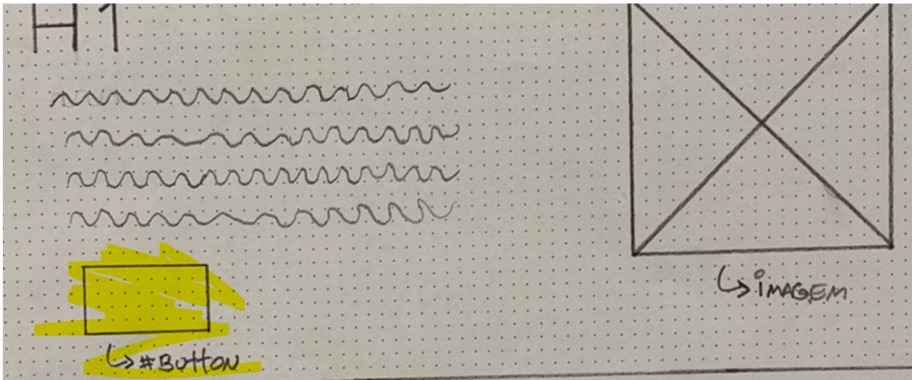 H1
↳ #BUTTON
↳ iMAGEM